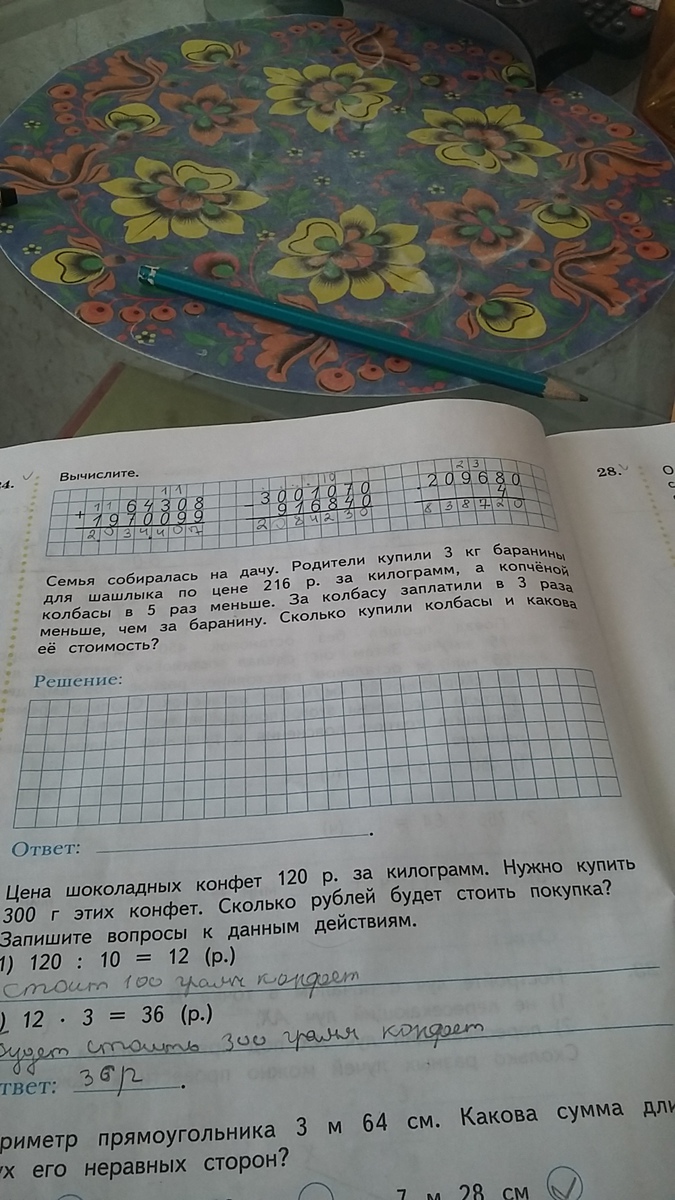 4.
Вычислите.
28.
1 1
1 1 64308
+
1970099
2034407
10
3001070
-
916840
2084230
2 3
209680
4
838720
Семья собиралась на дачу. Родители купили 3 кг баранины
для шашлыка по цене 216 р. за килограмм, а копчёной
колбасы в 5 раз меньше. За колбасу заплатили в 3 раза
меньше, чем за баранину. Сколько купили колбасы и какова
её стоимость?
Решение:
Ответ: .
Цена шоколадных конфет 120 р. за килограмм. Нужно купить
300 г этих конфет. Сколько рублей будет стоить покупка?
Запишите вопросы к данным действиям.
1) 120 : 10 = 12 (р.)
стоит 100 грамм конфет
) 12 · 3 = 36 (р.)
будет стоить 300 грамм конфет
твет: 36 р .
риметр прямоугольника 3 м 64 см. Какова сумма дли
ух его неравных сторон?
7 м 28 см